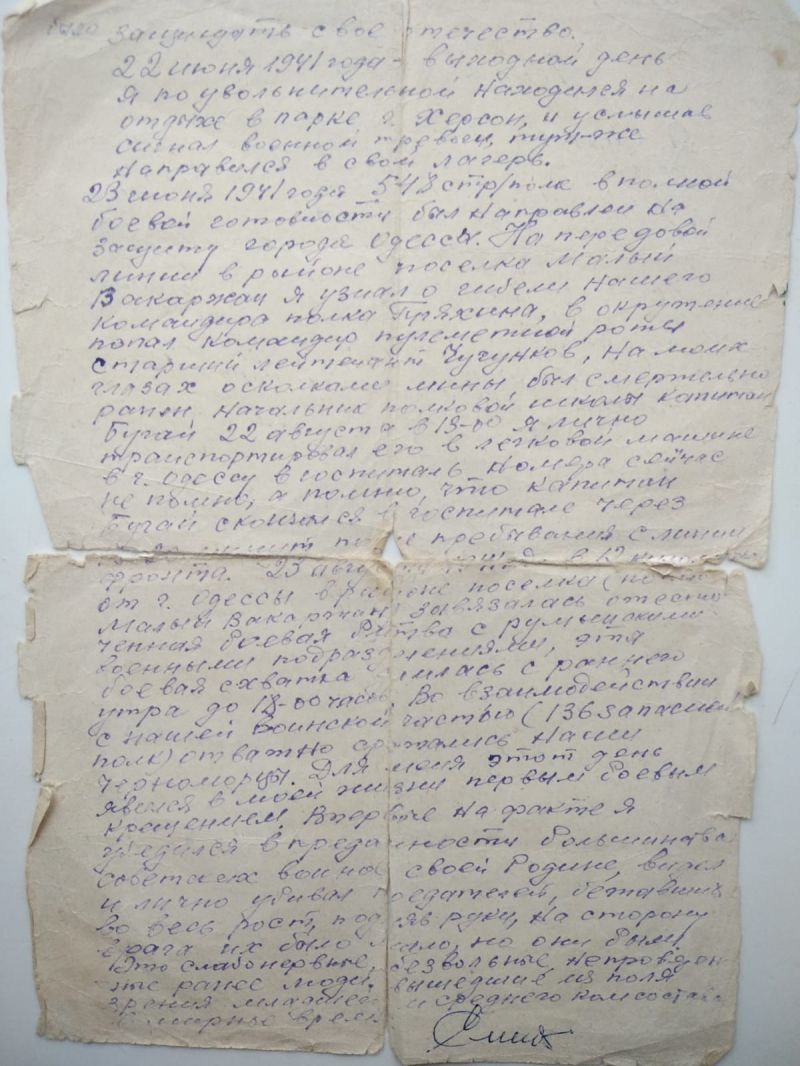 защищать свое отечество.
22 июня 1941 года - выходной день
я по увольнительной находился на
отдыхе в парке г. Херсон, и услышав
сигнал военной тревоги, тут-же
направился в свой лагерь.
23 июня 1941 года 548 стр/полк в полной
боевой готовности был направлен на
защиту города Одессы. На передовой
линии в районе поселка Малый
Вакаржан я узнал о гибели нашего
командира полка Пряхина, в окружение
попал командир пулеметной роты
старший лейтенант Чугунков, на моих
глазах осколками мины был смертельно
ранен начальник полковой школы капитан
Бугай 22 августа в 18-00 я лично
транспортировал его в легковой машине
в г. Одессу в госпиталь номера сейчас
не помню, а помню, что капитан
Бугай скончался в госпитале через
минут пребывания с линии
фронта. 23 в 12
от г. Одессы в районе поселка
Малый Вакаржан) завязалась ожесто
ченная боевая битва с румынскими
военными подразделениями, эта
боевая схватка длилась с раннего
утра до 18-00 часов. Во взаимодействии
с нашей воинской частью (136 запасной
полк) отважно сражались наши
черноморцы. Для меня этот день
явился в моей жизни первым боевым
крещением. Впервые на факте я
убедился в преданности большинства
советских воинов своей Родине, видел
и лично убивал предателей, бежавших
во весь рост, подняв руки, на сторону
врага их было мало, но они были.
Это слабонервные, безвольные непроверен
ные ранее люди, вышедшие из поля
зрения младшего и среднего комсостава
в мирное время